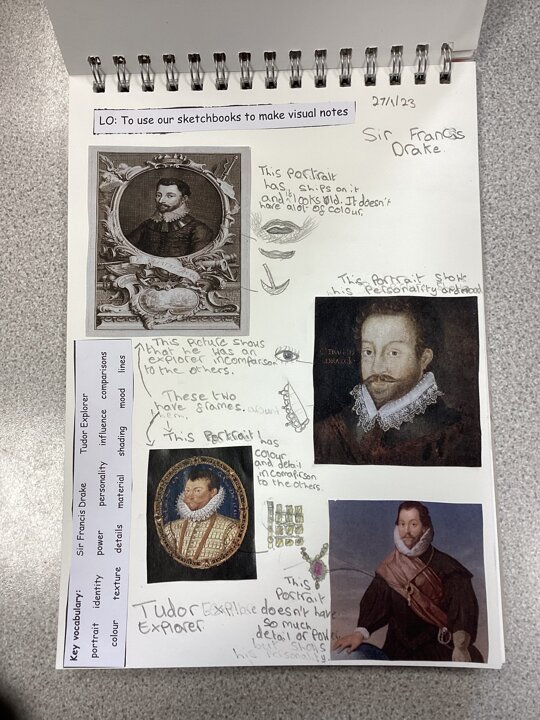 LO: To use our sketchbooks to make visual notes
27/1/23
Sir Francis
Drake
This Portrait
has ships on it
and it looks old. It doesn't
have alot of colour.
This Portrait shows
his Personality and mood
This picture shows
that he was an
explorer in comparison
to the others.
These two
have frames. around
them.
This Portrait has
colour
and detail
in comparison
to the others.
This
Portrait
doesn't have
so much
detail or Power
but shows
his Personality.
Tudor Explore
Explorer
Key vocabulary: Sir Francis Drake Tudor Explorer
portrait identity power personality influence comparisons
colour texture details material shading mood lines